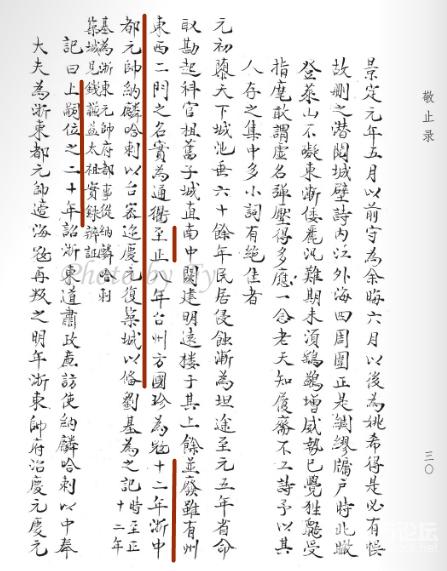 敬止录
景定元年五月以前守為余晦六月以後為姚希得是必有悞
故删之潜閱城壁詩内江外海四周圍正是綢繆牖户時北瞰
登萊山不礙東漸倭麗汛難期未須鵝鸛增威勢已覺狌鼯受
指麾敢謂虚名彈壓得多應一念老天知履齋不工詩予以其
人存之集中多小詞有絶佳者
元初隳天下城池垂六十餘年民居侵蝕漸為坦途至元五年省命
取勘起科官租舊子城直南中闕遠明遠樓于其上餘並廢雖有州
東西二門之名實為通衢至正八年台州方國珍為寇十二年浙中
都元帥納麟哈剌以台寇迩慶元復築城以俻劉基為之記
時至正十二年
基為浙東元帥府都事從納麟哈剌
築城見錢謙益太祖實録辨証
記曰上嗣位之二十年詔浙東道肅政亷訪使納麟哈剌以中奉
大夫為浙東都元帥遣海寇再叛之明年浙東帥府治慶元慶元
三〇
Photo by Ty